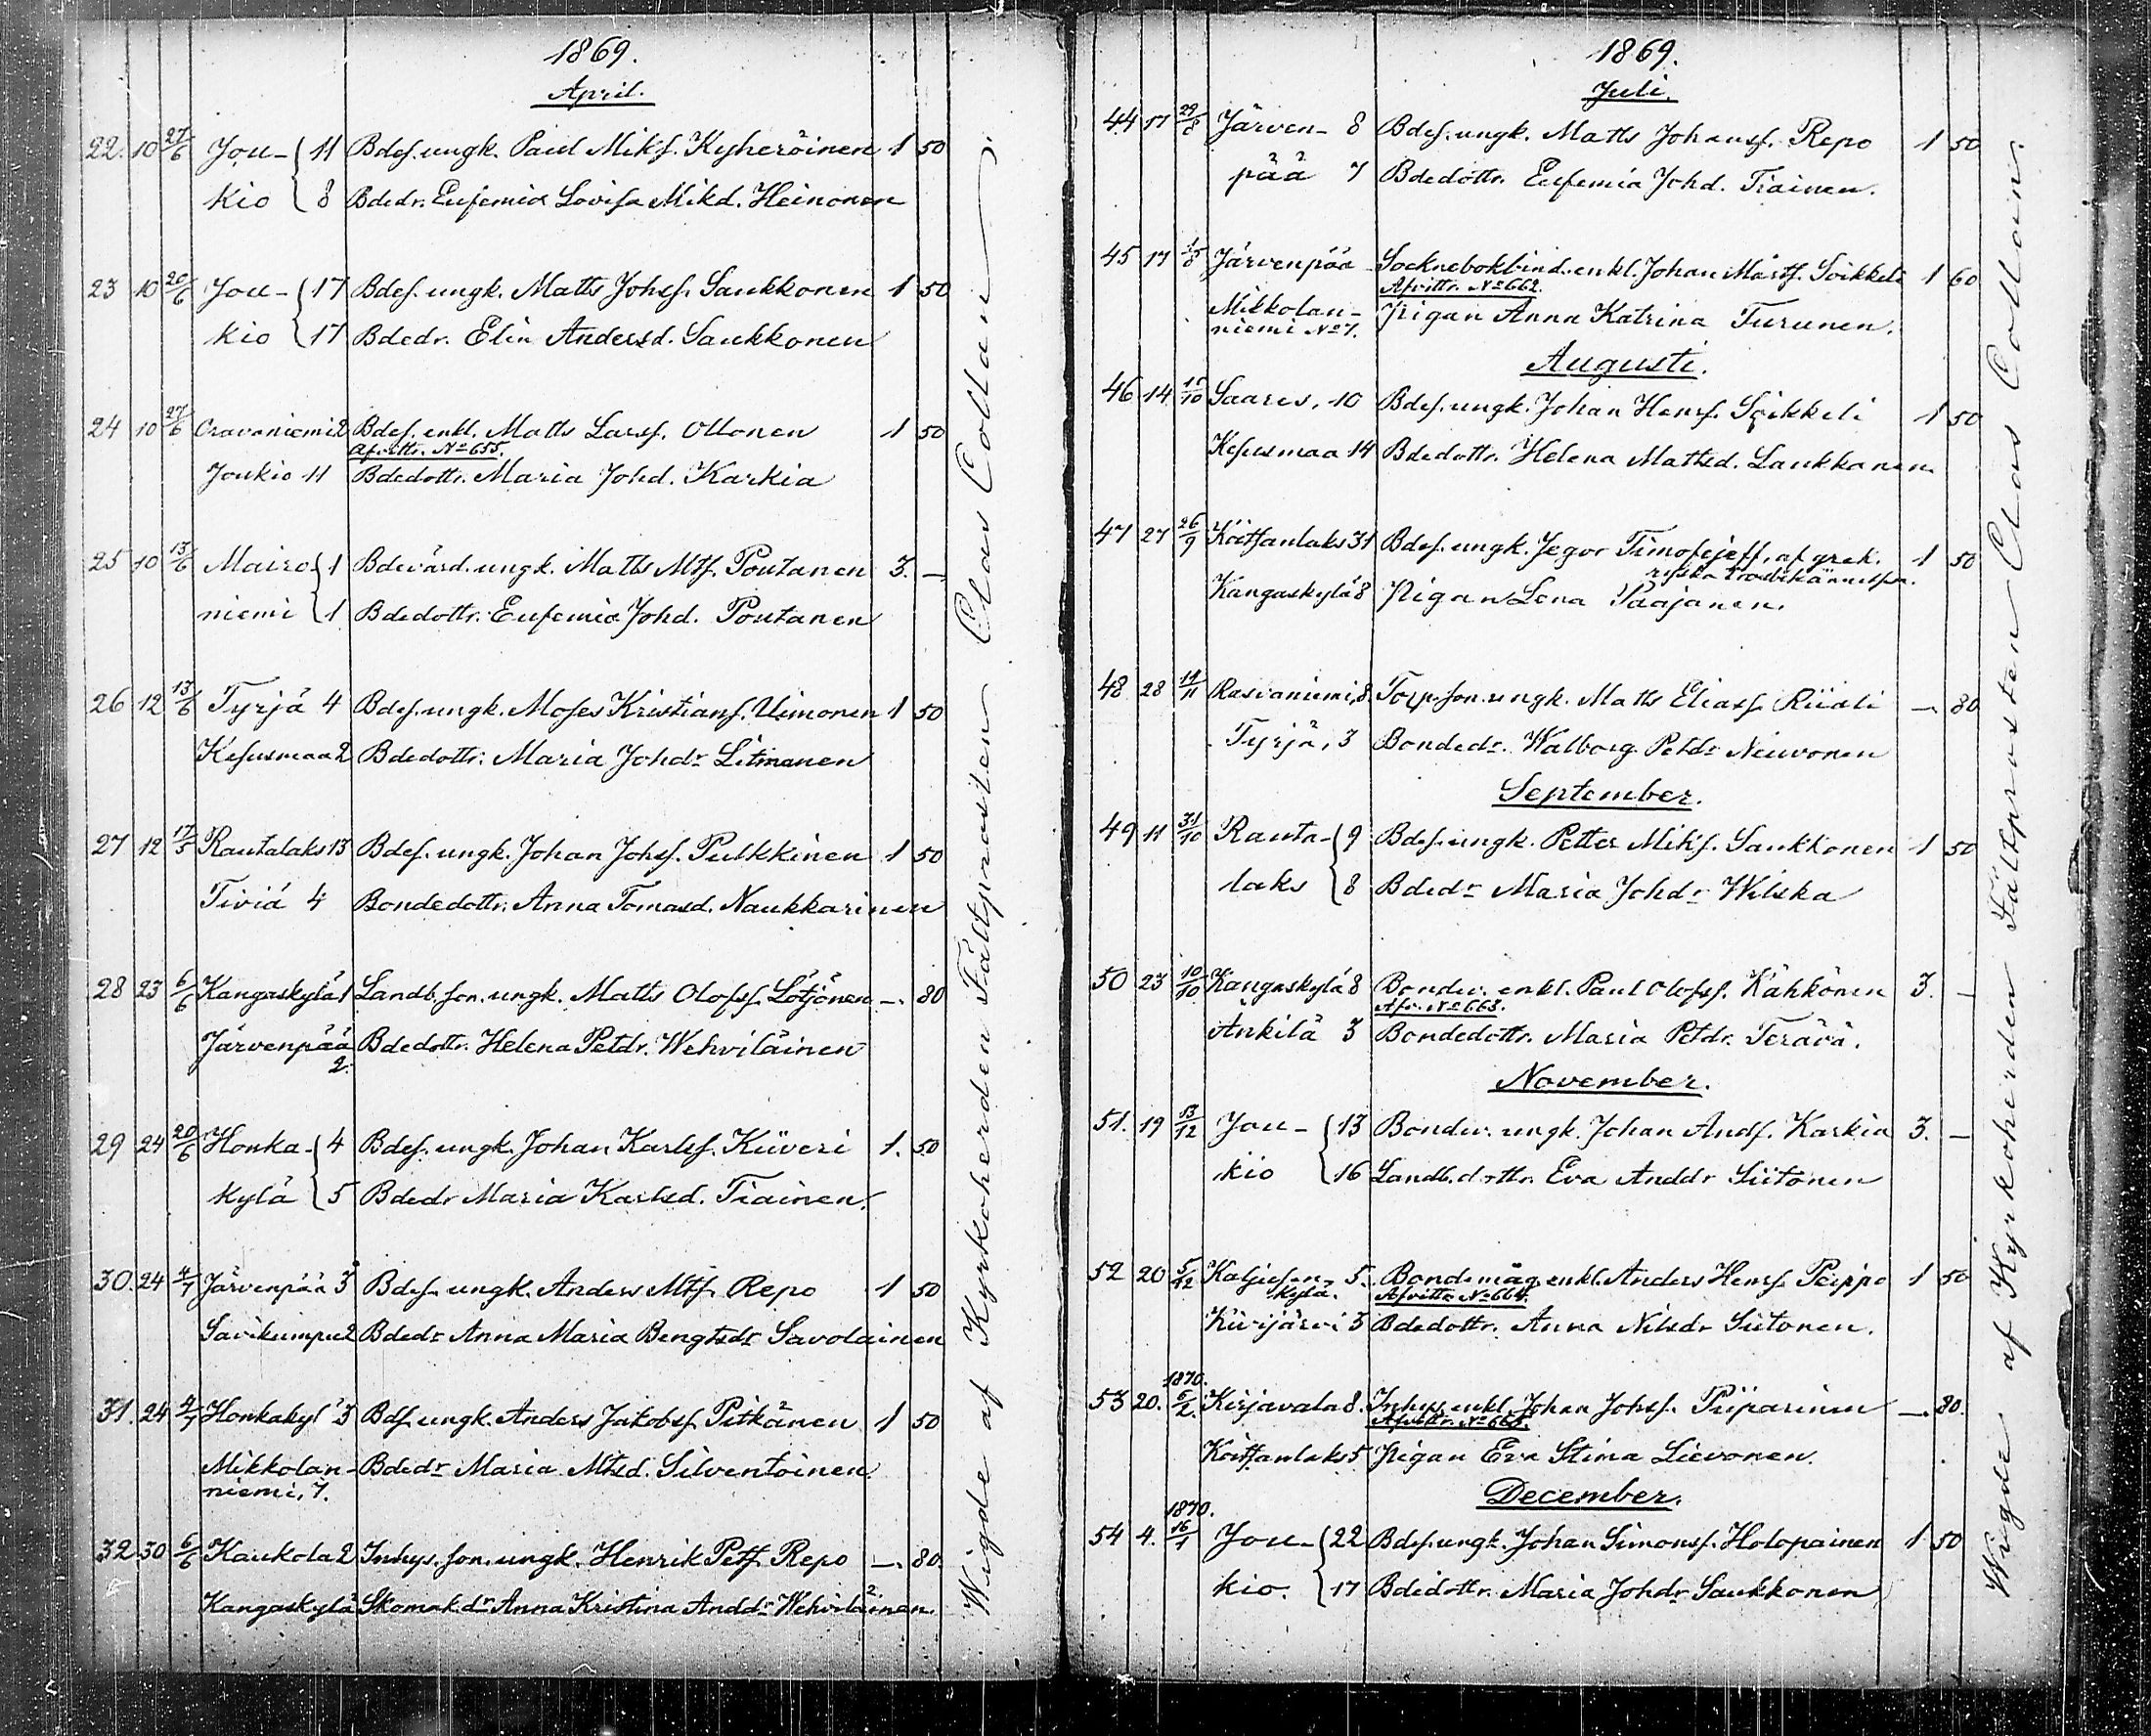 1869.
April.
22. 10 27/6 Jou- 11 Bdes. ungk. Paul Miks. Kyheröinen 1 50
kio 8 Bdedr. Eufemia Lovisa Mikd. Heinonen
23 10 20/6 Jou- 17 Bdes. ungk. Matts Johss. Saukkonen 1 50
kio 17 Bdedr. Elin Andersd. Saukkonen
24 10 27/6 Oravaniemi 2 Bdes. enkl. Matts Larss. Ollonen 1 50
Afvittr. No 655.
Joukio 11 Bdedottr. Maria Johd. Karkia
25 10 13/6 Mairo- 1 Bdevärd. ungk. Matts Mts. Poutanen 3. —
niemi 1 Bdedottr. Eufemia Johd. Poutanen
26 12 13/6 Tyrjä 4 Bdes. ungk. Moses Kristians. Uimonen 1 50
Kesusmaa 2 Bdedottr. Maria Johdr Litmanen
27 12 17/5 Rautalaks 13 Bdes. ungk. Johan Johss. Pulkkinen 1 50
Tiviä 4 Bondedottr. Anna Tomasd. Naukkarinen
28 23 6/6 Kangaskylä 1 Landb. son. ungk. Matts Olofss. Lötjönen —. 80
Järvenpää Bdedottr. Helena Petdr. Wehviläinen
2.
29 24 20/6 Honka- 4 Bdes. ungk. Johan Karlss. Kiiveri 1. 50
kylä 5 Bdedr Maria Karlsd. Tiainen.
30. 24 4/7 Järvenpää 3 Bdes. ungk. Anders Mts. Repo 1 50
Savikumpu 2 Bdedr Anna Maria Bengtsdr Savolainen
31. 24 4/7 Honkakyl 3 Bds ungk. Anders Jakobss. Pitkänen 1 50
Mikkolan- Bdedr Maria Mtsd. Silventoinen
niemi, 7.
32 30 6/6 Kaukola 2 Inhys. son. ungk. Henrik Pets. Repo —. 80.
Kangaskylä Skomak. dr Anna Kristina Anddr Wehviläinen.
Wigde af Kyrkoherden Fältprosten Clas Collan.
1869.
Juli.
44 17 22/8 Järven- 8 Bdes. ungk. Matts Johanss. Repo 1 50
pää 7 Bdedottr. Eufemia Johd. Tiainen.
45 17 Järvenpää Socknebokbind. enkl. Johan Märts. Soikkeli 1 60
Afvittr. No 662.
Mikkolan- Pigan Anna Katrina Turunen.
niemi No 7.
Augusti.
46 14 17/10 Saares, 10 Bdes. ungk. Johan Henrs. Soikkeli 1 50
Kesusmaa 14 Bdedottr. Helena Mattsd. Laukkanen
47 27 26/9 Koitsanlaks 31 Bdes. ungk. Jegor Timofejeff, af grek. 1 50
ryska trosbekännelsen.
Kangaskylä 8 Pigan Lena Paajanen.
48 28 14/11 Rasvaniemi, 8. Torp. son. ungk. Matts Eliass. Riiali —. 80
Tyrjä, 3 Bondedr. Walborg Petdr Neuvonen
September.
49 11 31/10 Rauta- 9 Bdes. ungk. Petter Miks. Saukkonen 1 50
laks 8 Bdedr Maria Johdr Wilska
50 23 10/10 Kangaskylä 8 Bondev. enkl. Paul Olofss. Kähkönen 3. —
Afv. No 663.
Änkilä 3 Bondedottr. Maria Petdr. Terävä.
November.
51. 19 13/12 Jou- 13 Bondev. ungk. Johan Ands. Karkia 3. —
kio 16 Landb. dottr. Eva Anddr Siitonen
52 20 5/12 Kaljusen- 5. Bondemåg enkl. Anders Henrs. Peippo 1 50
kylä. Afvittr. No 664.
Kivijärvi 3 Bdedottr. Anna Nilsdr Siitonen.
1870.
53 20. 6/2. Kirjavala 8. Inhys. enkl. Johan Johss. Piiparinen —. 80.
Afvittr. No 665.
Koitsanlaks 5 Pigan Eva Stina Lievonen.
December.
1870.
54 4. 16/1 Jou- 22 Bdes. ungk. Johan Simonss. Holopainen 1 50
kio. 17 Bdedottr. Maria Johdr Saukkonen
Wigde af Kyrkoherden Fältprosten Clas Collan.